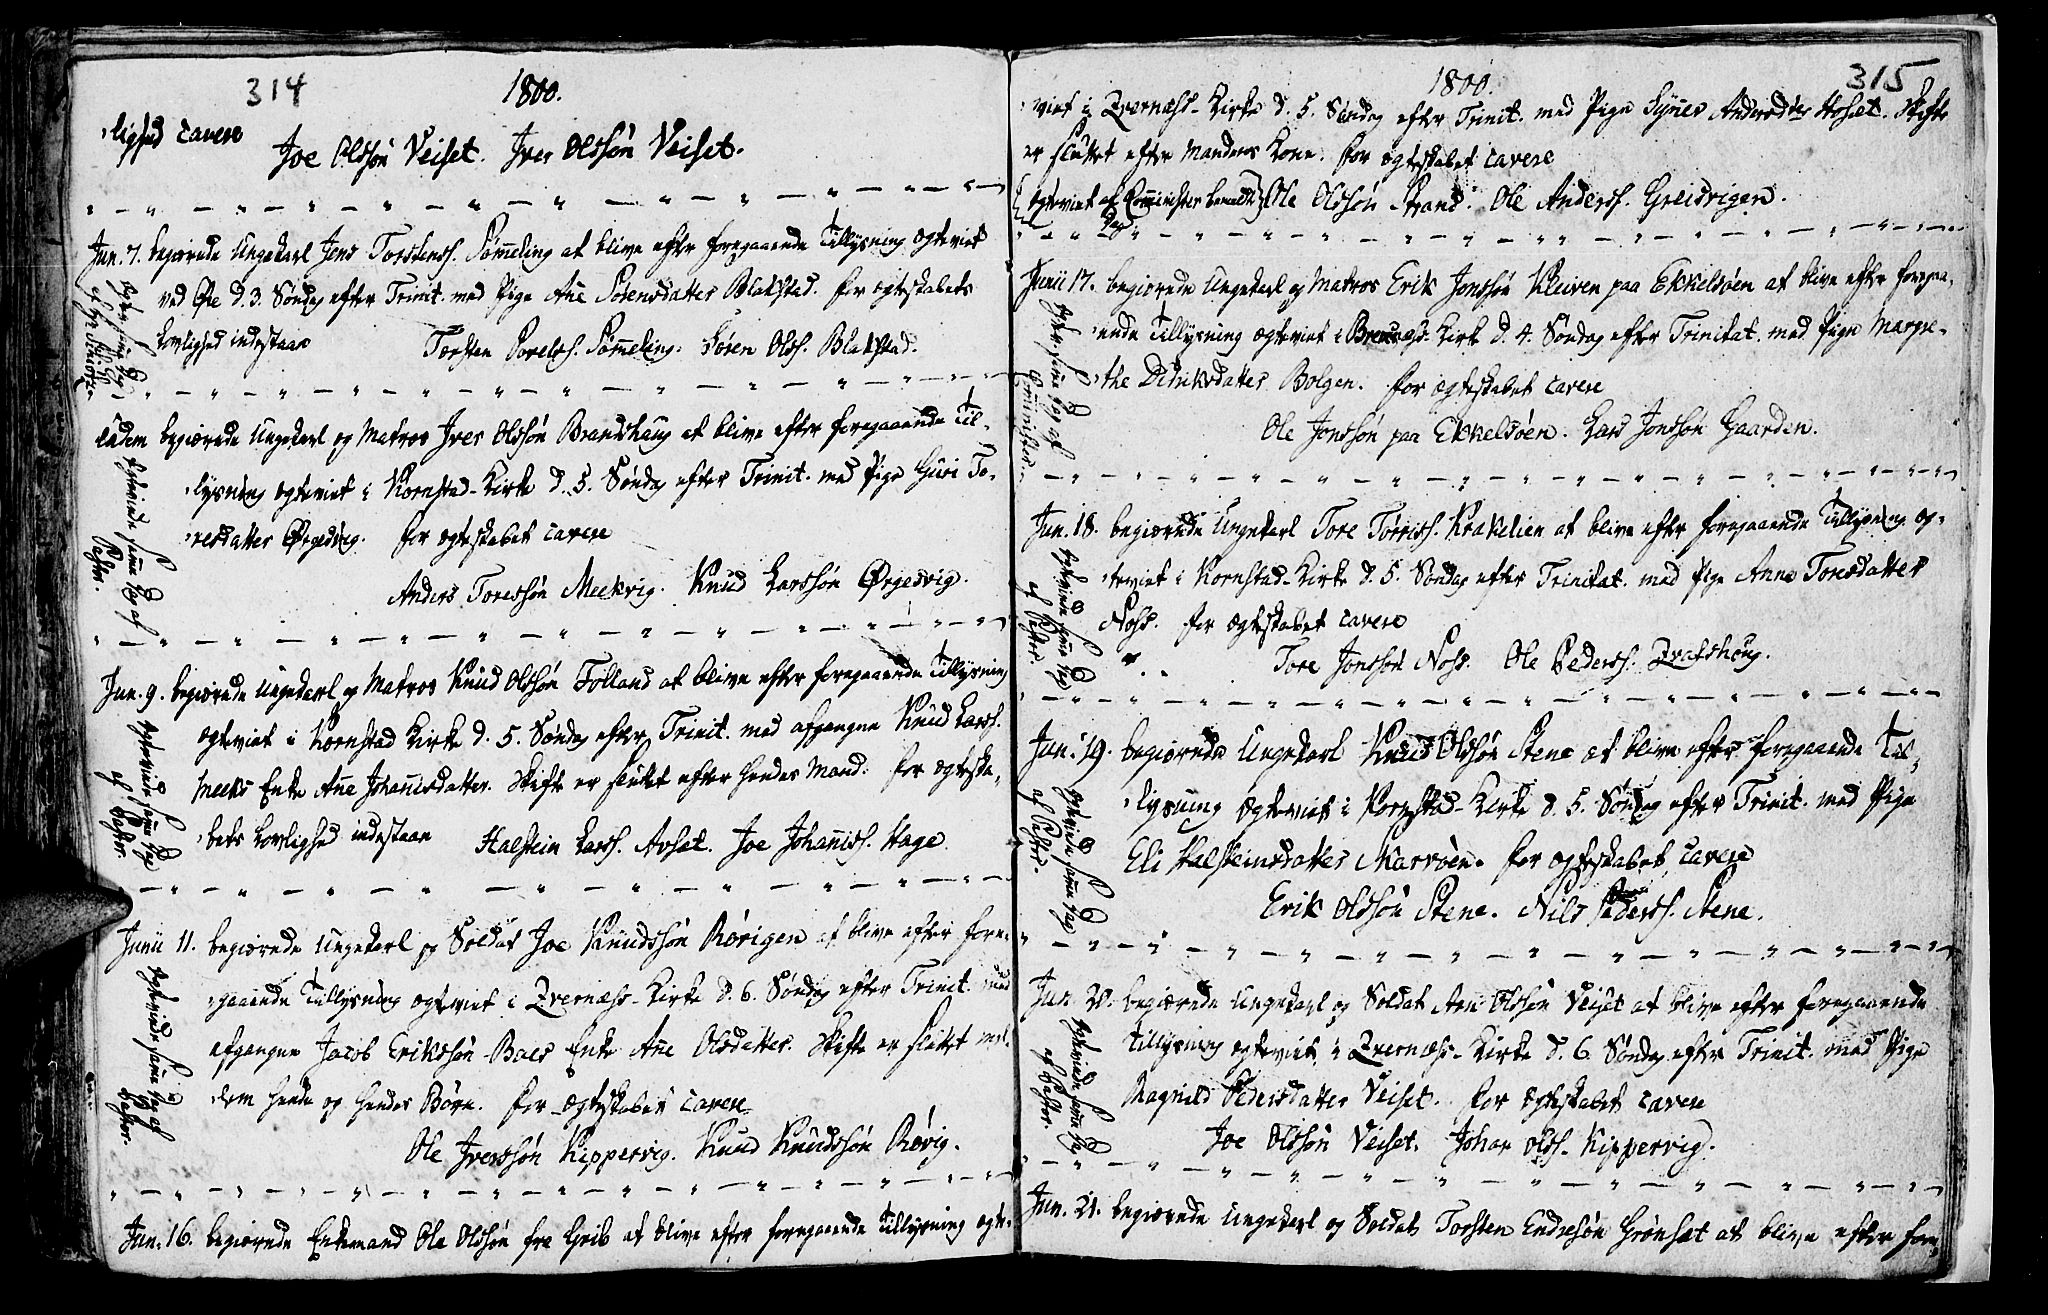 314
1800.
lighed cavere
Joe Olssøn Veiset. Iver Olssøn Veiset.
Jun. 7. begiærede Ungekarl Jens Torstenss. Sømmeling at blive efter foregaaende Tillysning ægteviet
ved Øre d. 3. Søndag efter Trinit. med Pige Ane Sørensdatter Blakstad. for ægteskabets
Lovlighed indestaar
Torsten Povelss. Sømeling. Søren Olss. Blakstad.
Ægteviede samme Dag
af Hr.
eodem begiærede Ungekarl og Matros Iver Olssøn Brandshaug at blive efter foregaaende Til-
lysning ægteviet i Kornstad-Kirke d. 5. Søndag efter Trinit. med Pige Guri To-
resdatter Ørgedvig. for ægteskabet cavere
Anders Toressøn Meekvig. Knud Larssøn Ørgesvig.
Ægteviede samme Dag af
Pastor.
Jun. 9. begiærede Ungekarl og Matros Knud Olssøn Folland at blive efter foregaaende Tillysning
ægteviet i Kornstad Kirke d. 5. Søndag efter Trinit. med afgangne Knud Larss.
Meeks Enke Ane Johanisdatter. Skifte er sluttet efter hendes Mand. for ægteska-
bets Lovlighed indestaae Halstein Larss. Avset. Joe Johaniss. Hage.
Ægteviede samme Dag
af Pastor.
Junii 11. begiærede Ungekarl og Soldat Joe Knudssøn Rørigen at blive efter fore-
gaaende Tillysning ægteviet i Qvernæss-Kirke d. 6. Søndag efter Trinit. med
afgangne Jacob Erikssøn Baes Enke Ane Olsdatter. Skifte er sluttet mel-
lem hende og hendes Børn. for ægteskabet cavere
Ole Iverssøn Kippervig. Knud Knudssøn Røvig.
Ægteviede samme Dag af
Pastor.
Jun. 16. begiærede Enkemand Ole Olssøn fra Grib at blive efter foregaaende Tillysning ægte-
315
1800.
viet i Qvernæss-Kirke d. 5. Søndag efter Trinit. med Pige Synev Andersdter Hoset. Skifte
er sluttet efter Mandens Kone. for ægteskabet cavere
Ægteviet af Comminister bemeldte Dag Ole Olssøn Strand. Ole Anderss. Greisvigen.
Junii 17. begiærede Ungekarl og Matros Erik Jonssøn Kleiven paa Ekkelsøen at blive efter foregaa-
ende Tillysning ægteviet i Bremsnæss-Kirke d. 4. Søndag efter Trinitat. med Pige Margre-
the Didriksdatter Bolgen. for ægteskabet cavere
Ole Jonssøn paa Ekkelsøen. Lars Jonssøn Gaarden.
Ægteviede samme Dag af
Comminister.
Jun. 18. begiærede Ungekarl Tore Torriss. Krakelien at blive efter foregaaende Tillysning æg-
teviet i Kornstad-Kirke d. 5. Søndag efter Trinitat. med Pige Anne Toresdatter
Noss. for ægteskabet cavere
Tore Jonssøn Noss. Ole Pederss. Qvakshoug.
Ægteviede samme Dag
af Pastor.
Jun. 19. begiærede Ungekarl Knud Olssøn Stene at blive efter foregaaende Til-
lysning ægteviet i Kornstad-Kirke d. 5. Søndag efter Trinit. med Pige
Eli Halsteinsdatter Marvøen. for ægteskabet cavere
Erik Olssøn Stene. Nils Pederss. Stene.
Ægteviede samme Dag
af Pastor.
Jun. 20. begiærede Ungekarl og Soldat Arn Olssøn Veiset at blive efter foregaaende
Tillysning ægteviet i Qvernæss-Kirke d. 6. Søndag efter Trinit. med Pige
Magnild Pedersdatter Veiset. for ægteskabet cavere
Joe Olssøn Veiset. Johan Olss. Kippervig.
Ægteviede samme Dag
af Pastor.
Jun. 21. begiærede Ungekarl og Soldat Torsten Endresøn Grønset at blive efter fore-